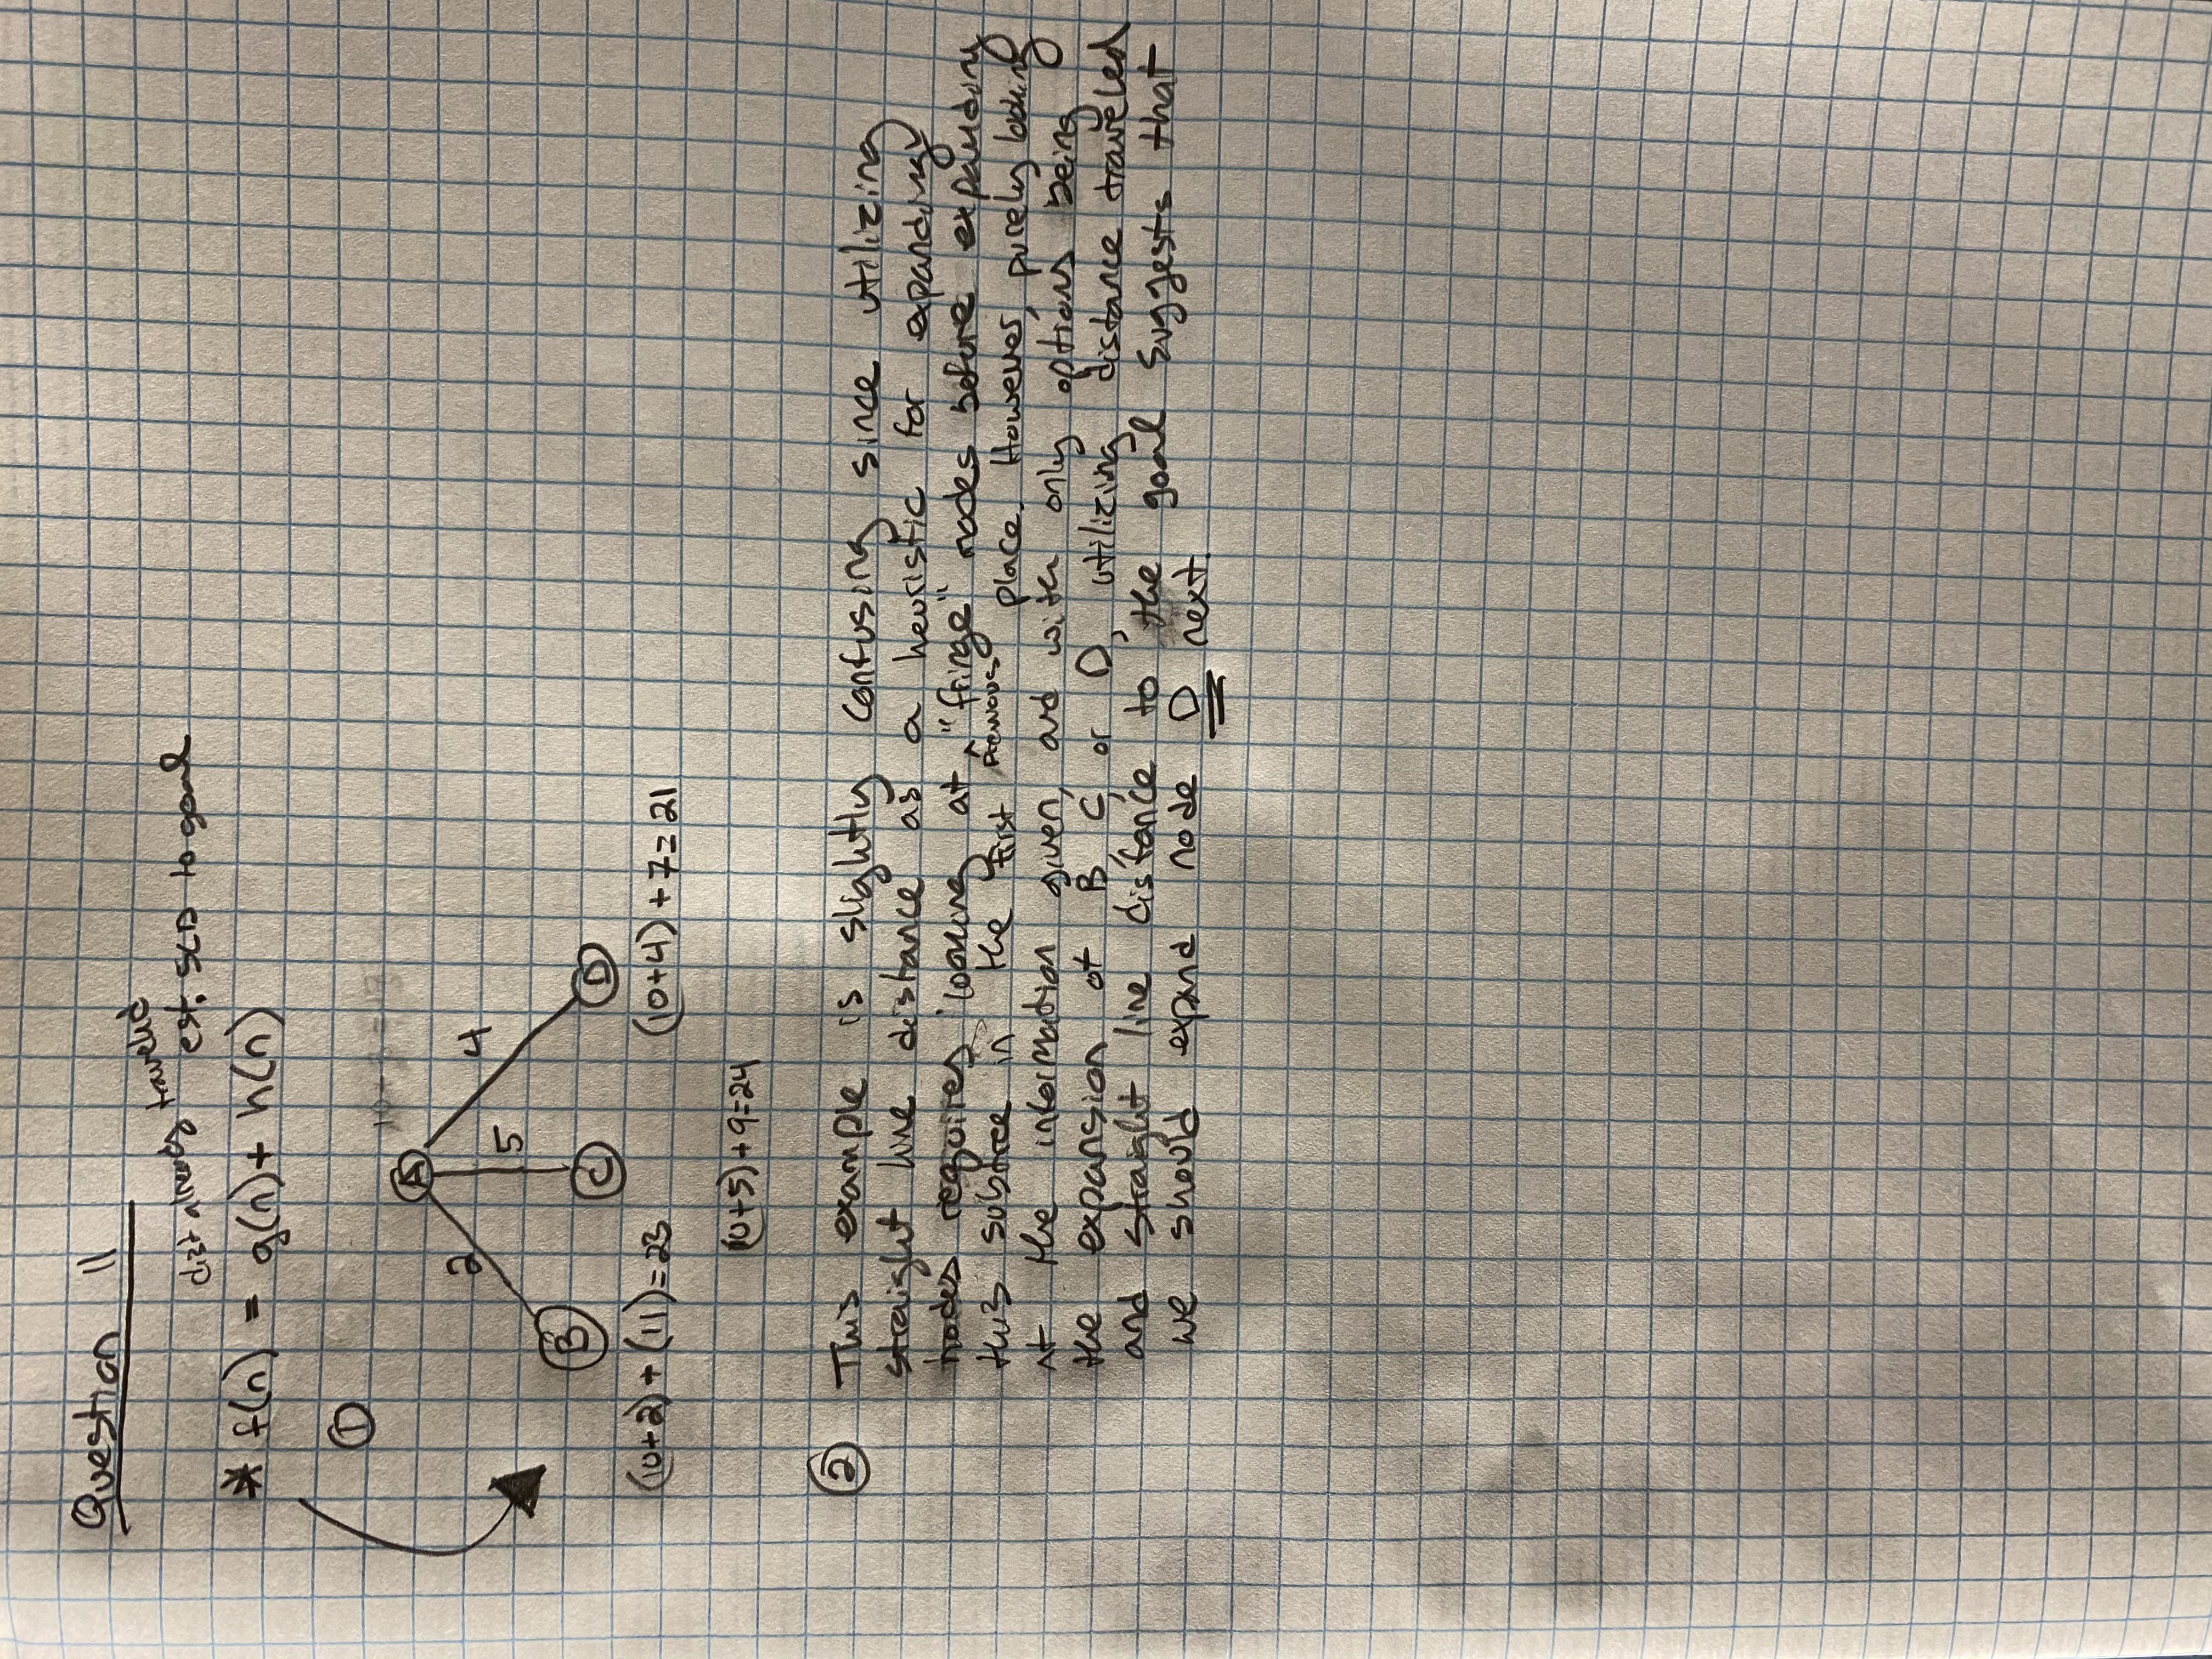 Question 11
dist already traveled
est. SLD to goal
* f(n) = g(n) + h(n)
①
A
2
5
4
B
C
D
(10+2) + (11) = 23
(10+4) + 7 = 21
(10+5) + 9 = 24
② This example is slightly confusing since utilizing
straight line distance as a heuristic for expanding
nodes requires looking at ^ "fringe" nodes before expanding
previous
this subtree in the first place. However, purely looking
at the information given, and with only options being
the expansion of B, C, or D, utilizing distance traveled
and straight line distance to the goal suggests that
we should expand node D next.